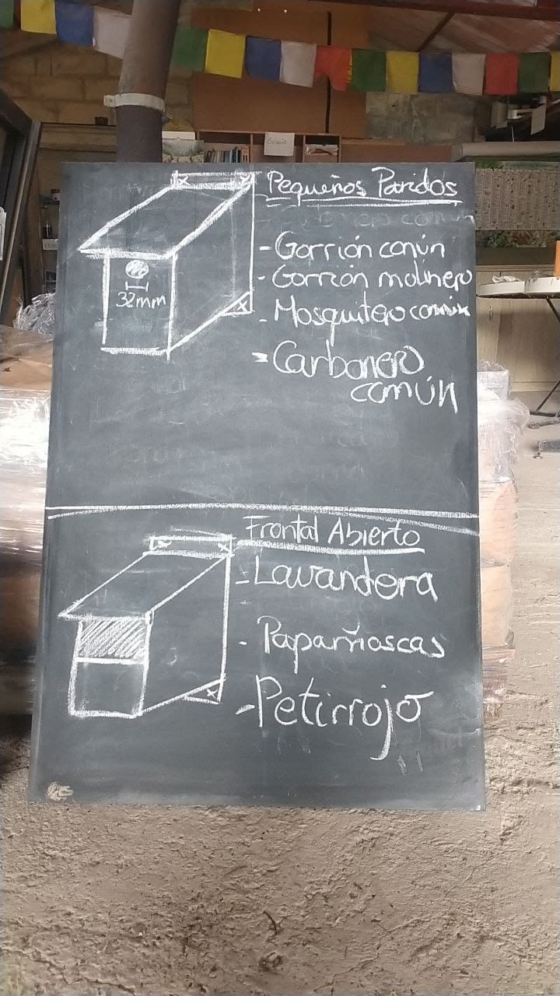 Pequeños Paridos
- Gorrión común
- Gorrión molinero
- Mosquitero común
- Carbonero
común
32mm
Frontal Abierto
- Lavandera
- Papamoscas
- Petirrojo